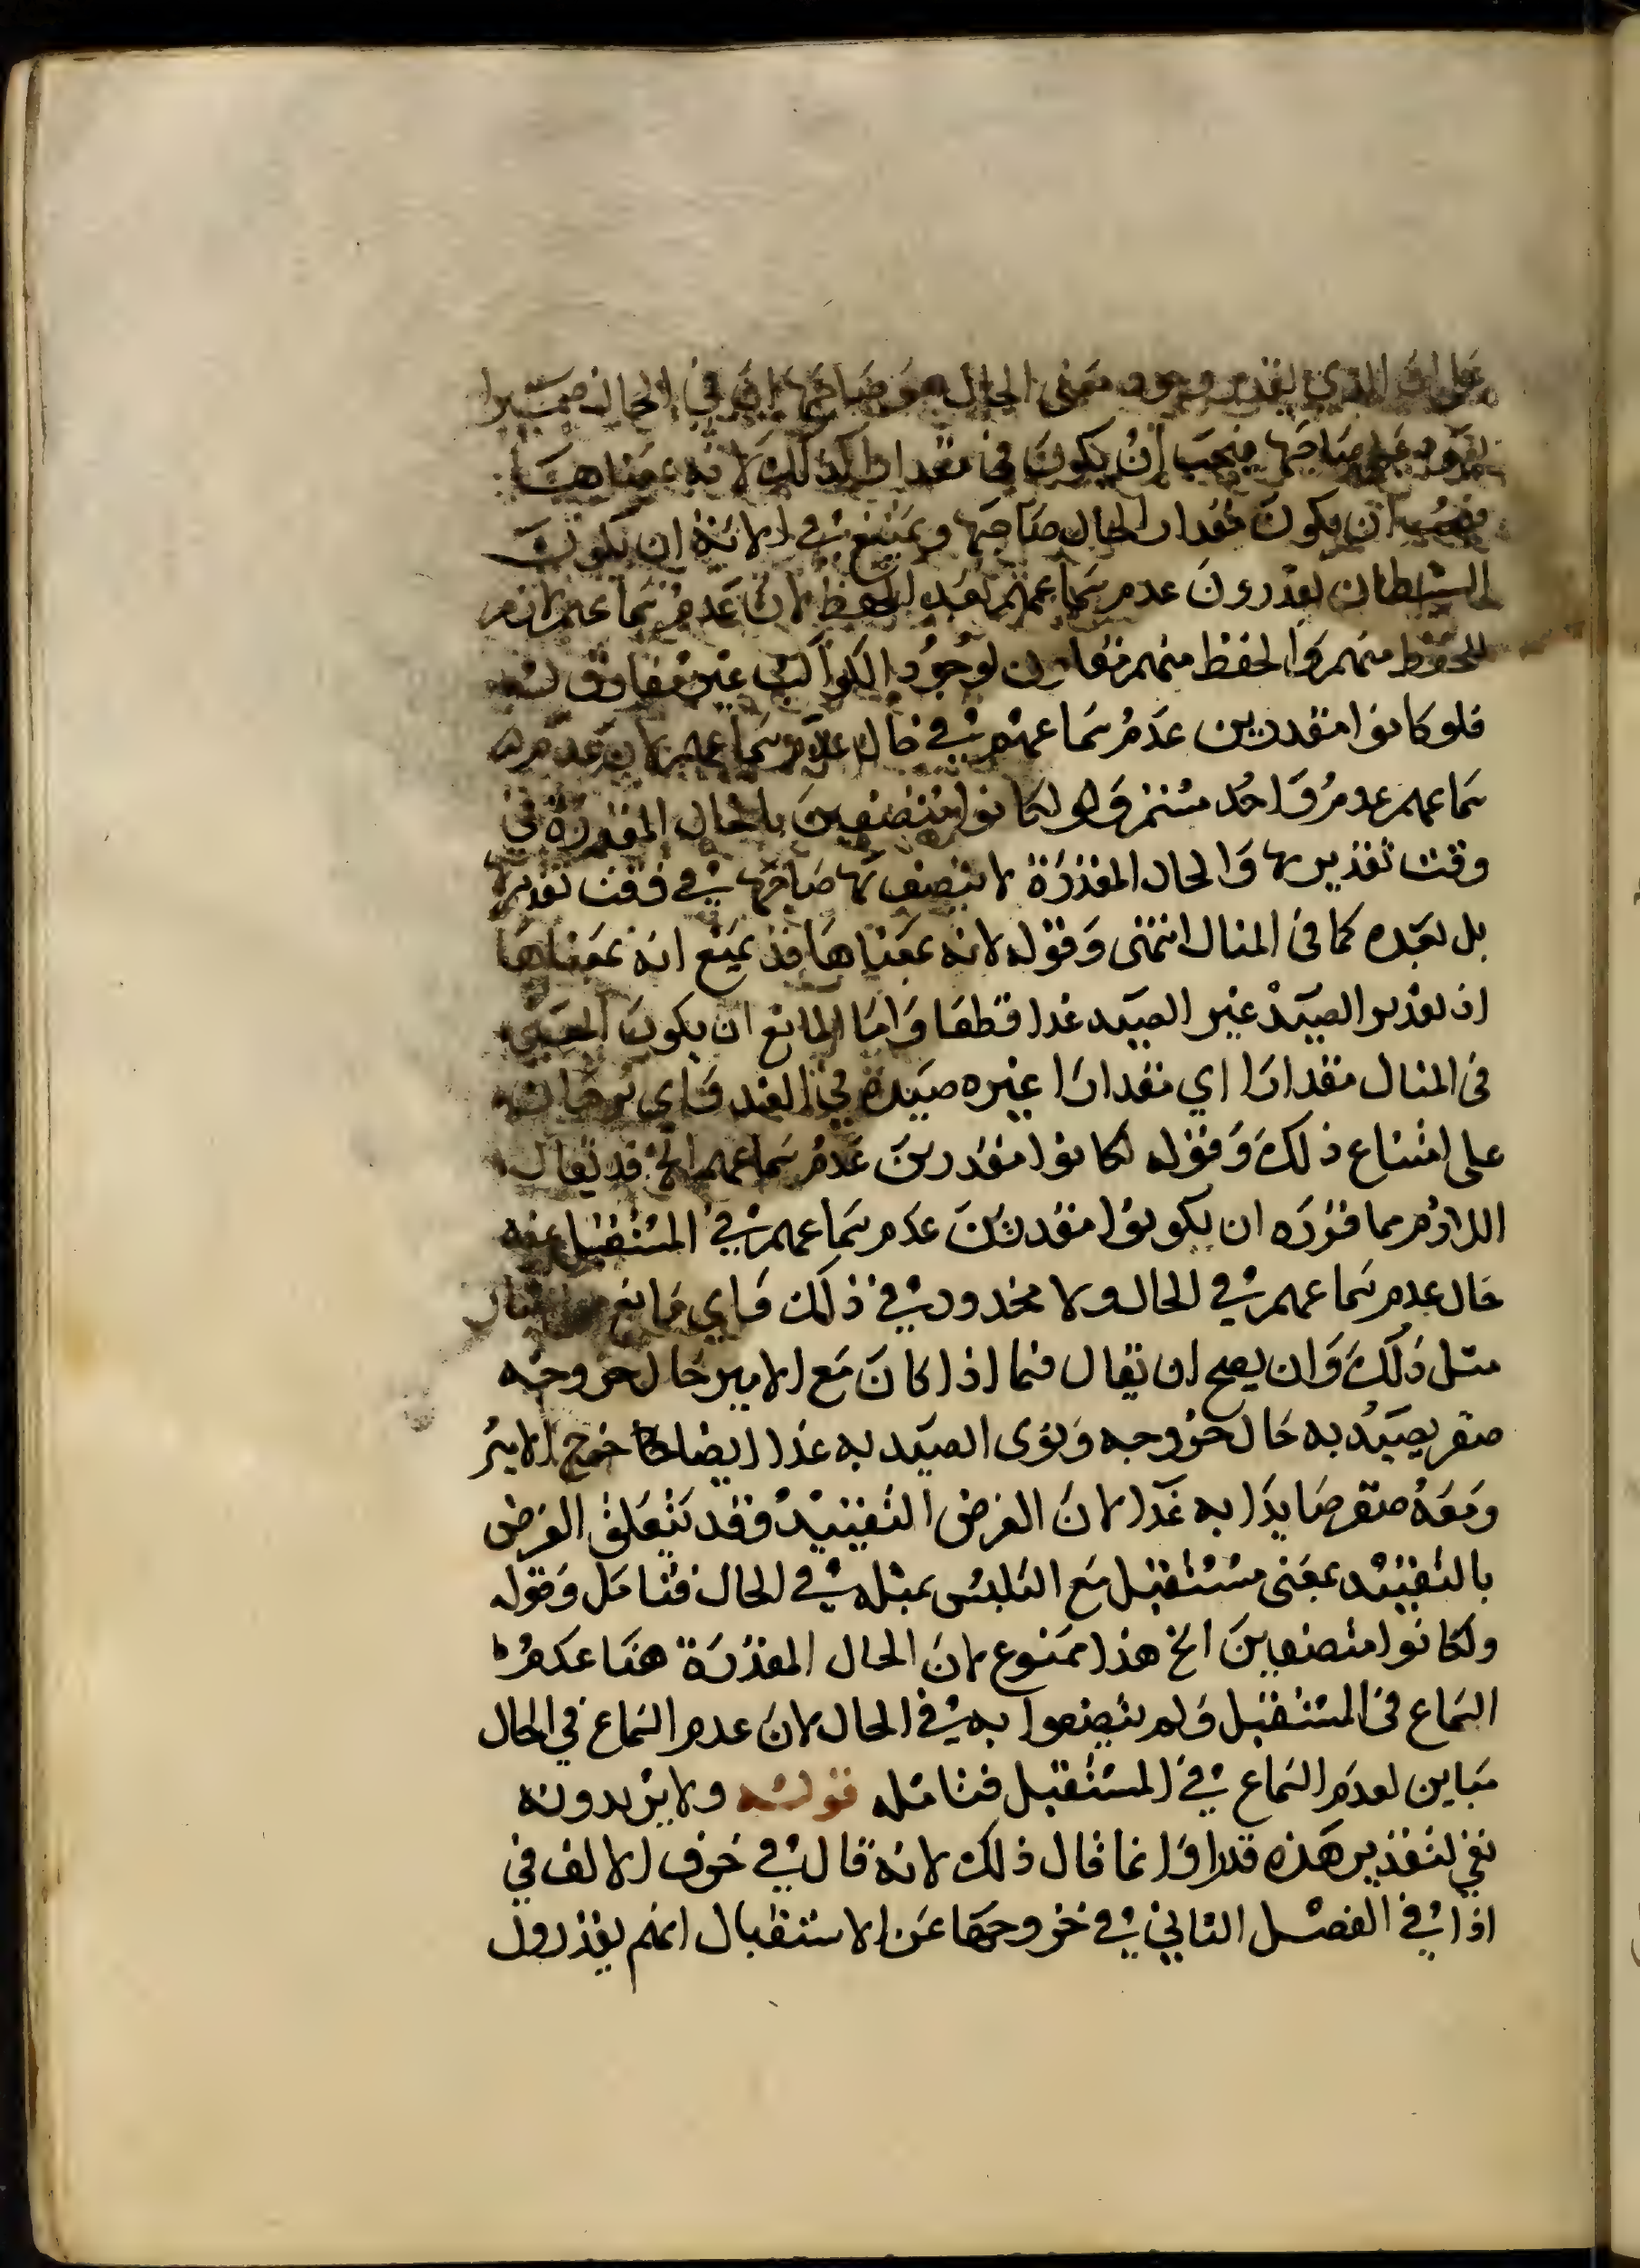 على ان الذي يقدر وجود معنى الحال هو صاحبها لان في الحال ضميرا
يعود على صاحبها فيجب ان يكون في مقدرا كذلك لانه بمعناها
فيجب ان يكون مقدرا لحال صاحبها ويمتنع في الاية ان يكون
الشيطان يقدرون عدم سماعهم بعد الحفظ لان عدم سماعهم لازم
للحفظ منهم والحفظ منهم مقارن لوجود الكواكب غير مفارق له
فلو كانوا مقدرين عدم سماعهم في حال عدم سماعهم لان عدم
سماعهم عدم واحد مستمر ولو لكانوا متصفين بالحال المقدرة في
وقت تقديرها والحال المقدرة لا يتصف بها صاحبها في وقت تقديرها
بل بعده كما في المثال انتهى وقوله لانه بمعناها قد يمنع انه بمعناها
اذ تقدير الصيد غير الصيد غدا قطعا واما المانع ان يكون
في المثال مقدارا اي مقدارا غيره صيده في الغد فاي برهان
على امتناع ذلك وقوله لكانوا مقدرين عدم سماعهم الخ قد يقال
اللازم مما قرره ان يكونوا مقدرين عدم سماعهم في المستقبل
حال عدم سماعهم في الحال ولا محذور في ذلك فاي مانع
مثل ذلك وان يصح ان يقال فيما اذا كان مع الامير حال خروجه
صقر يصيد به حال خروجه ونوى الصيد به غدا ايضا خرج الامير
ومعه صقر صايدا به غدا لان الغرض التقييد وقد يتعلق الغرض
بالتقييد بمعنى مستقبل مع التلبس بمثله في الحال فتامل وقوله
ولكانوا متصفين الخ هذا ممنوع لان الحال المقدرة هنا عدم
السماع في المستقبل ولم يتصفوا به في الحال لان عدم السماع في الحال
مباين لعدم السماع في المستقبل فتامله قوله ولا يريدونه
نفي لتقدير هذه قدرا وانما قال ذلك لانه قال في حرف الالف في
اذا في الفصل الثاني في خروجها عن الاستقبال انهم يقدرون